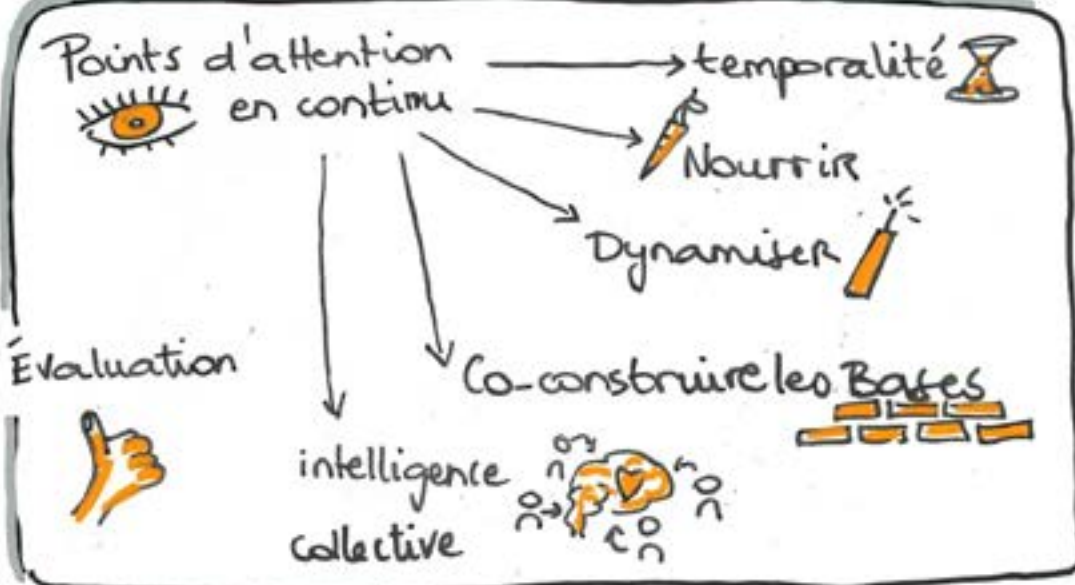 Points d'attention
en continu
temporalité
Nourrir
Dynamiser
Évaluation
Co-construire les Bases
intelligence
collective